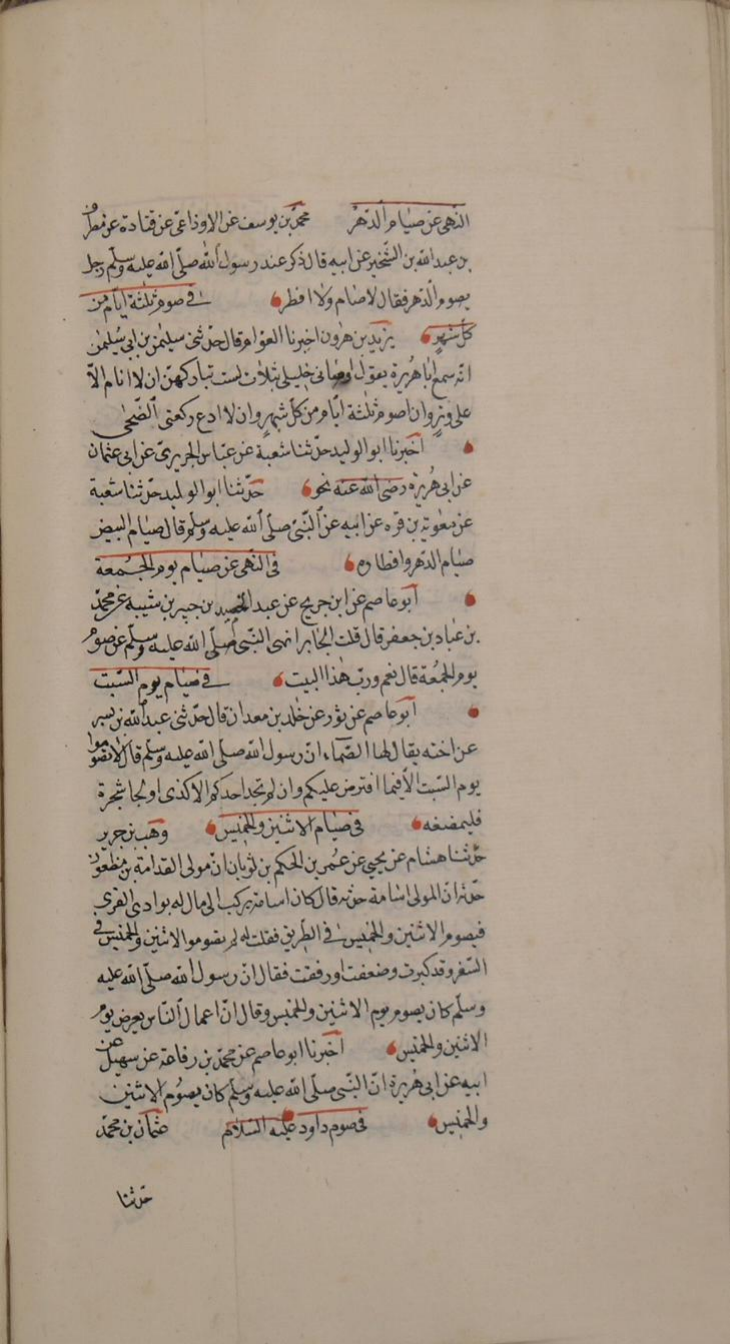 النهى عن صيام الدهر محمد بن يوسف عن الاوزاعى عن قتادة عن مطرف
بن عبد الله بن الشخير عن ابيه قال ذكر عند رسول الله صلى الله عليه وسلم رجل
يصوم الدهر فقال لا صام ولا افطر فى صوم ثلثة ايام من
كل شهر يزيد بن هرون اخبرنا العوام قال حدثنى سليمن بن ابى سليمن
انه سمع ابا هريرة يقول اوصانى خليلى بثلاث لست بتاركهن ان لا انام الا
على وتر وان اصوم ثلثة ايام من كل شهر وان لا ادع ركعتى الضحى
اخبرنا ابو الوليد حدثنا شعبة عن عباس الجريرى عن ابى عثمان
عن ابى هريرة رضى الله عنه نحو حدثنا ابو الوليد حدثنا شعبة
عن معوية بن قره عن ابيه عن النبى صلى الله عليه وسلم قال صيام البيض
صيام الدهر وافطاره فى النهى عن صيام يوم الجمعة
ابو عاصم عن ابن جريج عن عبد الحميد بن جبير بن شيبه عن محمد
بن عباد بن جعفر قال قلت لجابر انهى النبى صلى الله عليه وسلم عن صوم
يوم الجمعة قال نعم ورب هذا البيت فى صيام يوم السبت
ابو عاصم عن ثور عن خلد بن معدان قال حدثنى عبد الله بن بسر
عن اخته يقال لها الصماء ان رسول الله صلى الله عليه وسلم قال لا تصوموا
يوم السبت الا فيما افترض عليكم وان لم تجد احدكم الا كذى او لحا شجرة
فليمضغه فى صيام الاثنين والخميس وهب بن جرير
حدثنا هشام عن يحيى عن عمر بن الحكم بن ثوبان ان مولى القدامة بن مظعون
حدثه ان المولى اسامة حدثه قال كان اسامة يركب الى مال له بوادى القرى
فيصوم الاثنين والخميس فى الطريق فقلت له لم تصوموا الاثنين والخميس فى
السفر وقد كبرت وضعفت او رفقت فقال ان رسول الله صلى الله عليه
وسلم كان يصوم يوم الاثنين والخميس وقال ان اعمال الناس يعرض يوم
الاثنين والخميس اخبرنا ابو عاصم عن محمد بن رفاعة عن سهيل عن
ابيه عن ابى هريرة ان النبى صلى الله عليه وسلم كان يصوم الاثنين
والخميس فى صوم داود عليه السلام عثمان بن محمد
حدثنا